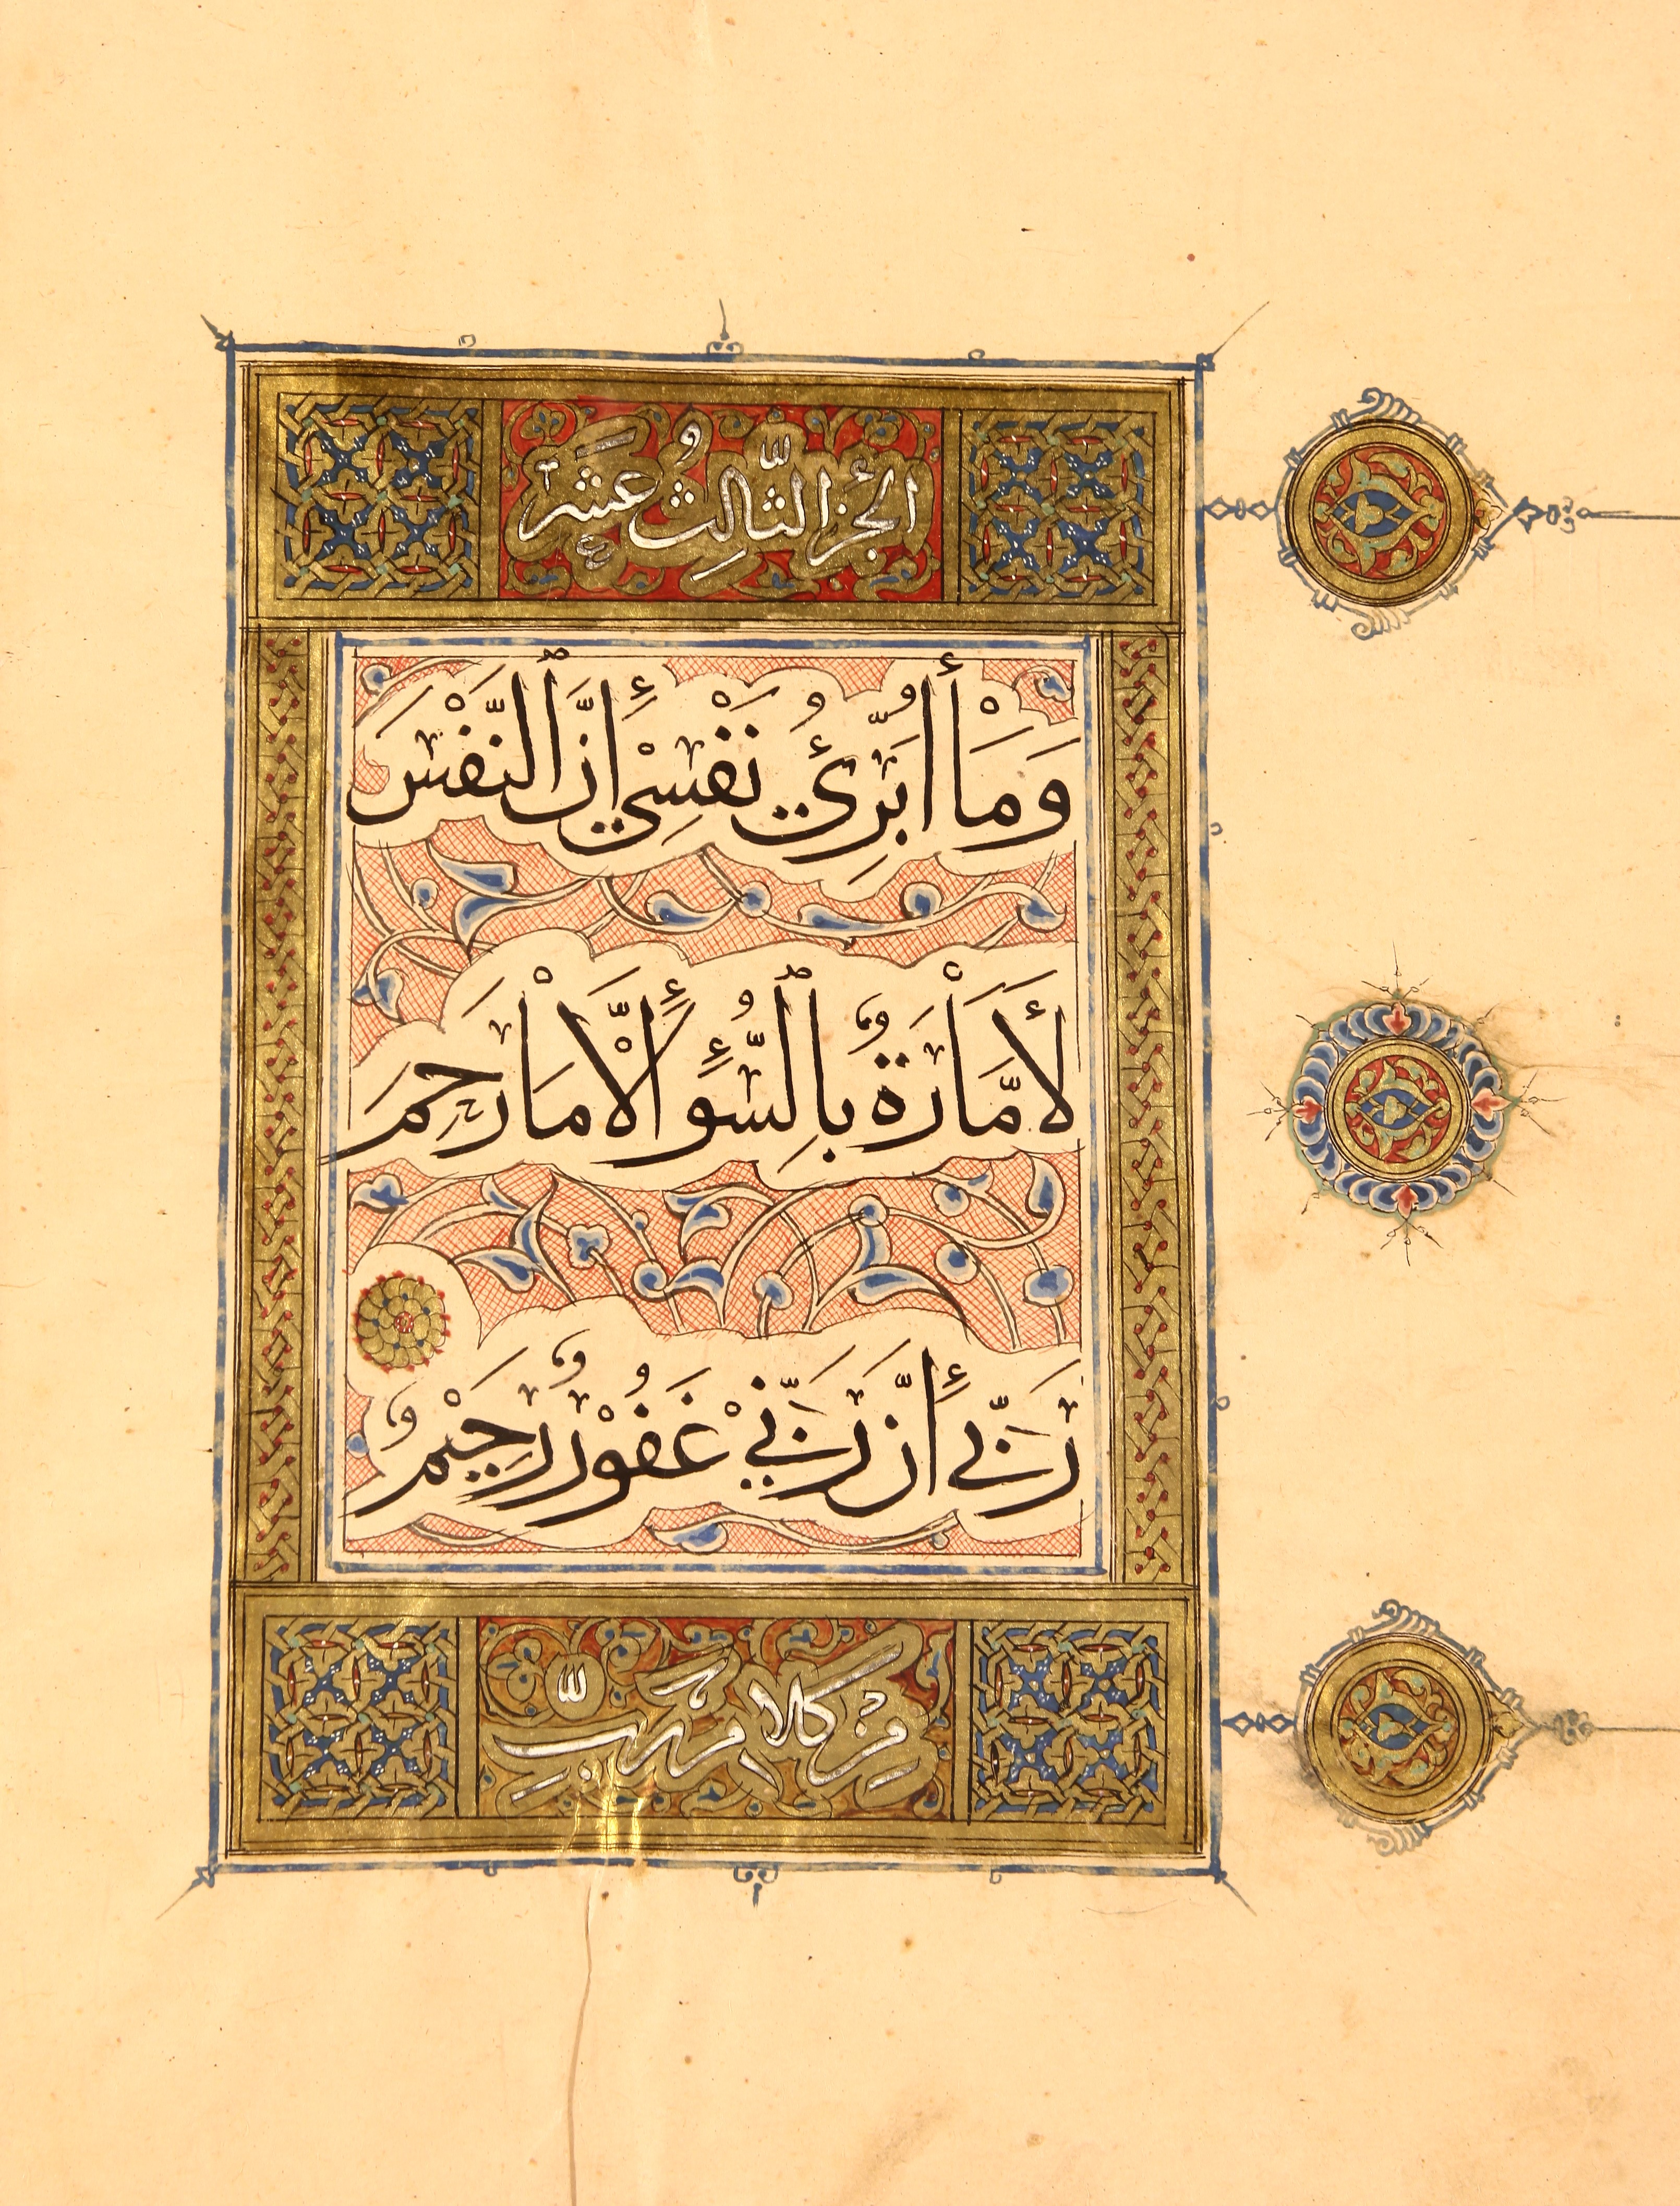 الجزء الثالث عشر
وَمَا أُبَرِّئُ نَفْسِي إِنَّ النَّفْسَ
لَأَمَّارَةٌ بِالسُّوءِ إِلَّا مَا رَحِمَ
رَبِّي إِنَّ رَبِّي غَفُورٌ رَحِيمٌ
من كلام رب